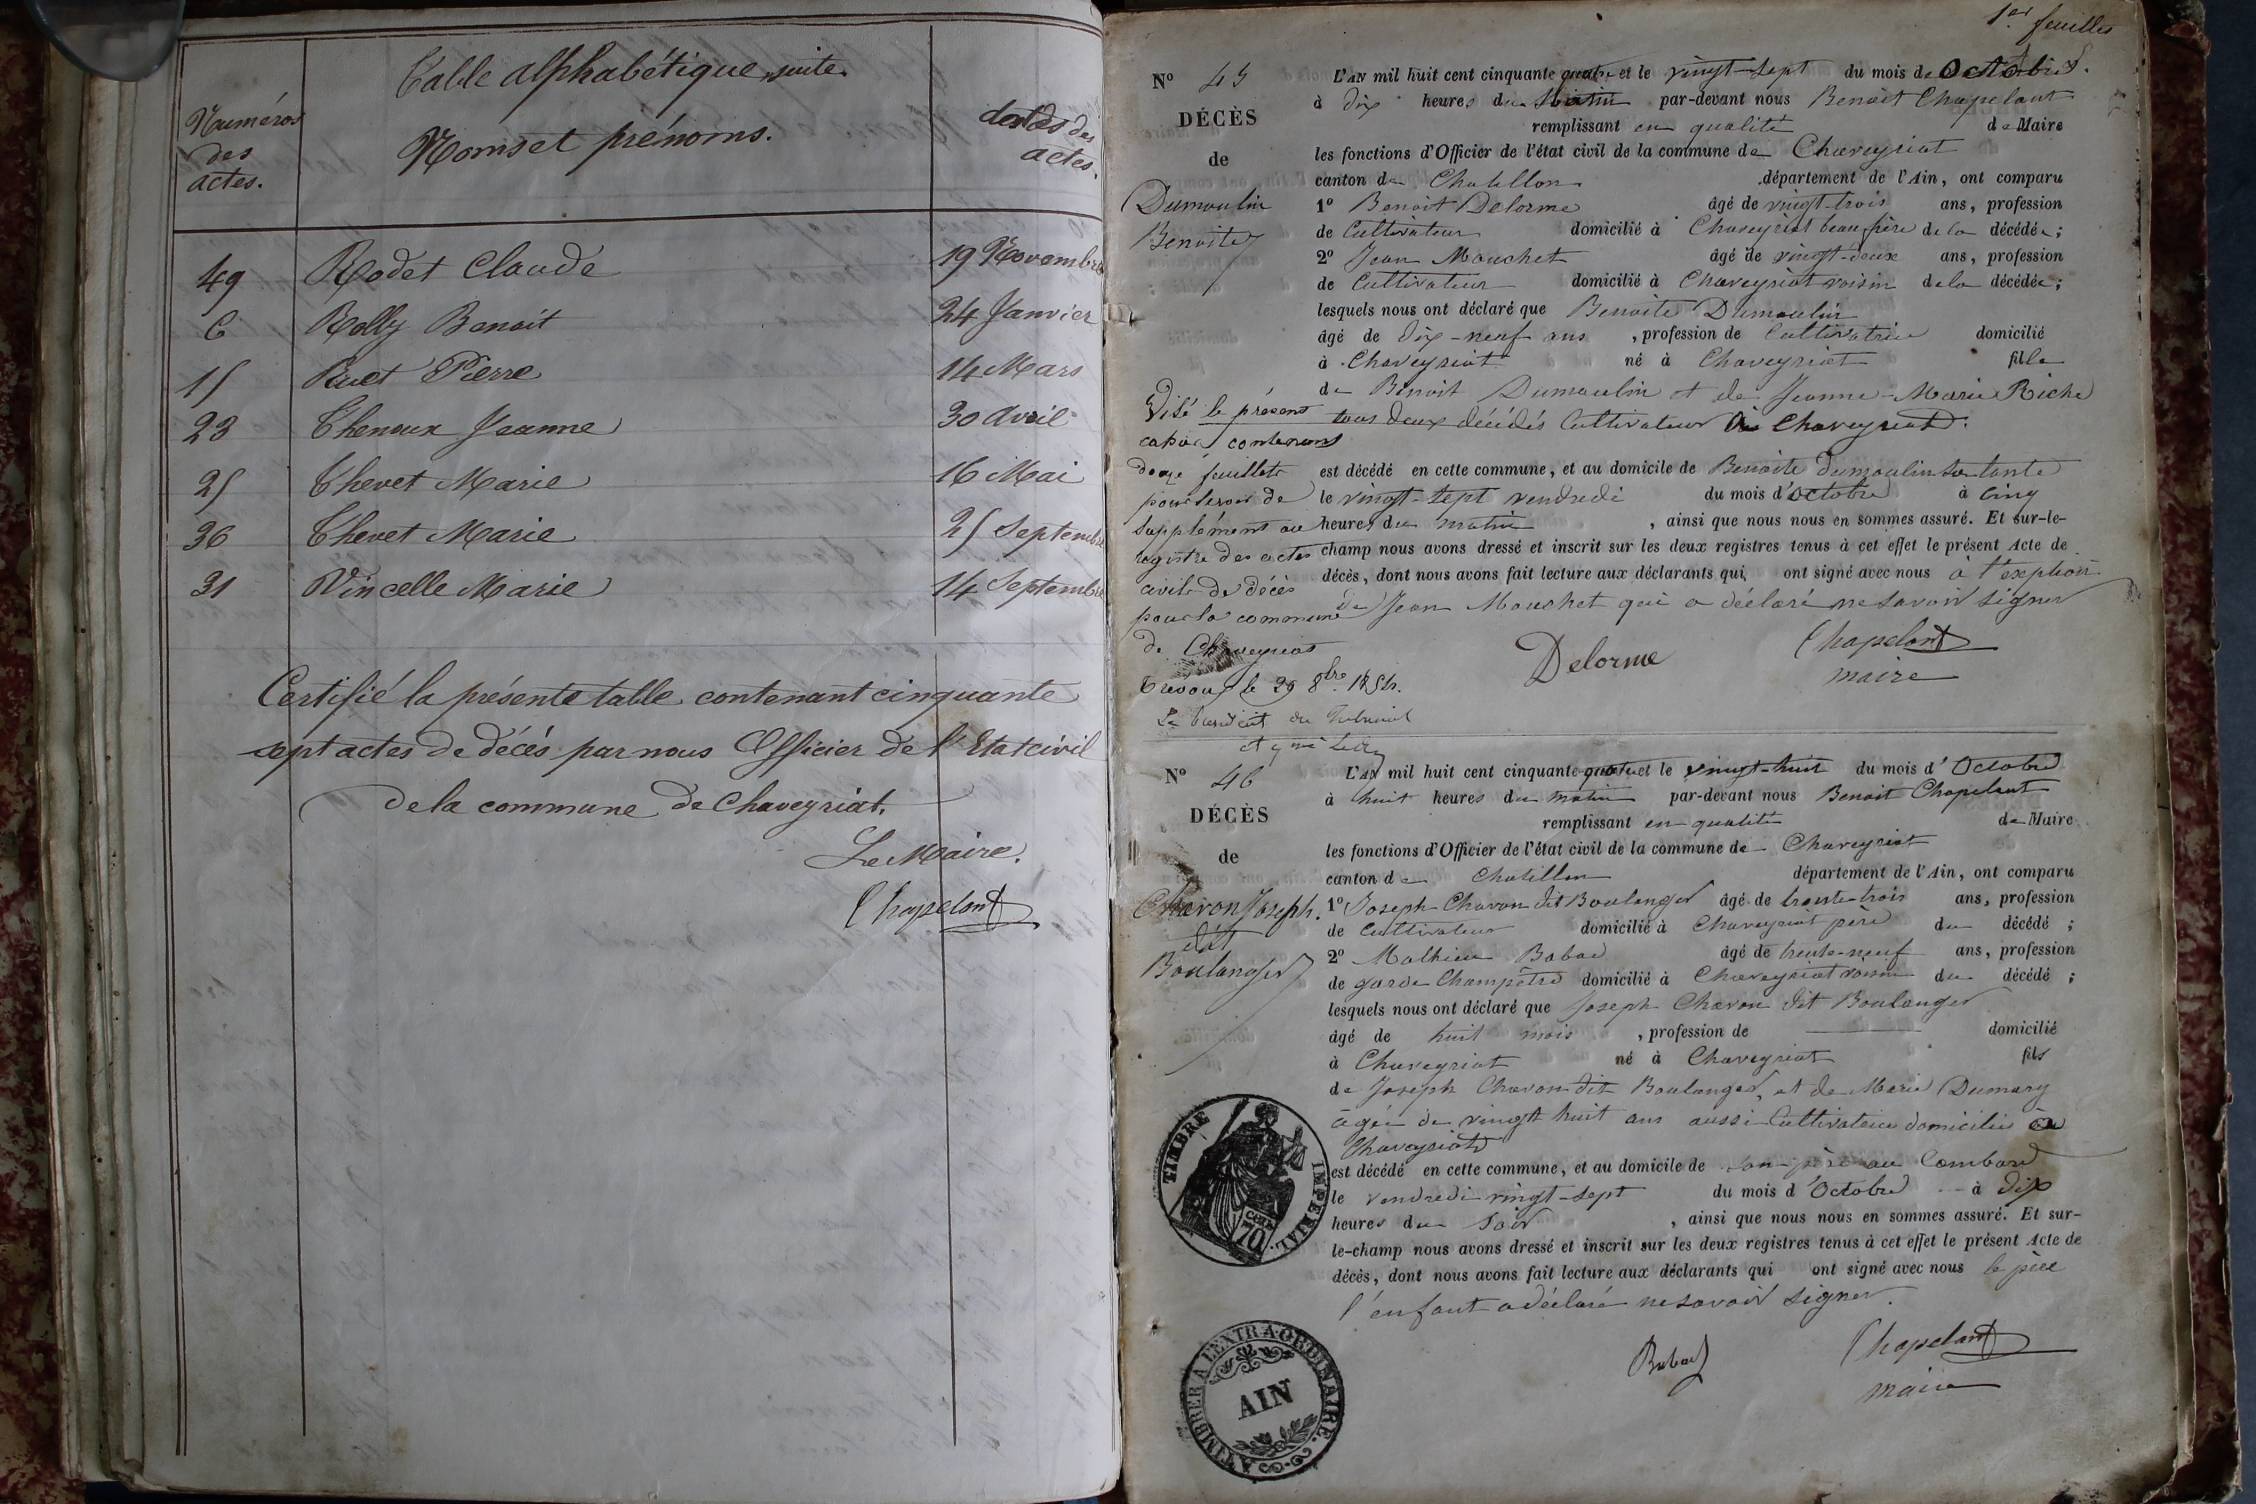 Table alphabétique, suite.
Numéros des actes.
Noms et prénoms.
dates des actes.
49 Rodet Claude 19 Novembre
6 Rolly Benoit 24 Janvier
15 Ruet Pierre 14 Mars
23 Thenoux Jeanne 30 Avril
25 Thevet Marie 16 Mai
36 Thevet Marie 25 Septembre
31 Vincelle Marie 14 Septembre
Certifié la présente table contenant cinquante
sept actes de décés par nous Officier de l'Etat civil
de la commune de Chaveyriat.
Le Maire.
Chapelant
1er feuillet
No 45
DÉCÈS
de
Dumoulin
Benoite
L'AN mil huit cent cinquante quatre et le vingt-sept du mois de Octobre.
à dix heures du Matin par-devant nous Benoit Chapelant
remplissant en qualité de Maire
les fonctions d'Officier de l'état civil de la commune de Chaveyriat
canton de Chatillon département de l'Ain, ont comparu
1o Benoit Delorme âgé de vingt-trois ans, profession
de Cultivateur domicilié à Chaveyriat beau frère de la décédée;
2o Jean Mouchet âgé de vingt-deux ans, profession
de Cultivateur domicilié à Chaveyriat voisin de la décédée;
lesquels nous ont déclaré que Benoite Dumoulin
âgé de dix-neuf ans, profession de Cultivatrice domicilié
à Chaveyriat né à Chaveyriat fille
de Benoit Dumoulin et de Jeanne-Marie Riche
tous deux décédés Cultivateurs à Chaveyriat.
est décédé en cette commune, et au domicile de Benoite Dumoulin sa tante
le vingt-sept vendredi du mois d'octobre à cinq
heures du matin, ainsi que nous nous en sommes assuré. Et sur-le-
champ nous avons dressé et inscrit sur les deux registres tenus à cet effet le présent Acte de
décès, dont nous avons fait lecture aux déclarants qui ont signé avec nous à l'exption
de Jean Mouchet qui a déclaré ne savoir signer
Delorme
Chapelant
maire
Visé le présent
cahier contenant
douze feuillets
pour servir de
supplément au
registre des actes
civils de décès
pour la commune
de Chaveyriat
Trevoux le 29 8bre 1854.
Le Président du Tribunal
No 46
DÉCÈS
de
Charon Joseph.
dit
Boulanger
L'AN mil huit cent cinquante quatre et le vingt-huit du mois d'Octobre
à huit heures du matin par-devant nous Benoit Chapelant
remplissant en qualité de Maire
les fonctions d'Officier de l'état civil de la commune de Chaveyriat
canton de Chatillon département de l'Ain, ont comparu
1o Joseph Charon dit Boulanger âgé de trente-trois ans, profession
de Cultivateur domicilié à Chaveyriat père du décédé;
2o Mathieu Babad âgé de trente-neuf ans, profession
de garde Champêtre domicilié à Chaveyriat voisin du décédé;
lesquels nous ont déclaré que Joseph Charon dit Boulanger
âgé de huit mois, profession de domicilié
à Chaveyriat né à Chaveyriat fils
de Joseph Charon dit Boulanger, et de Marie Dumary
âgée de vingt huit ans aussi Cultivateurs domiciliés à
Chaveyriat
est décédé en cette commune, et au domicile de son père au Combard
le vendredi vingt-sept du mois d'Octobre à dix
heures du soir, ainsi que nous nous en sommes assuré. Et sur-
le-champ nous avons dressé et inscrit sur les deux registres tenus à cet effet le présent Acte de
décès, dont nous avons fait lecture aux déclarants qui ont signé avec nous le père
l'enfant a déclaré ne savoir signer.
Babad
Chapelant
maire
TIMBRE IMPERIAL.
70 CENT.
A TIMBRER A L'EXTRAORDINAIRE.
AIN